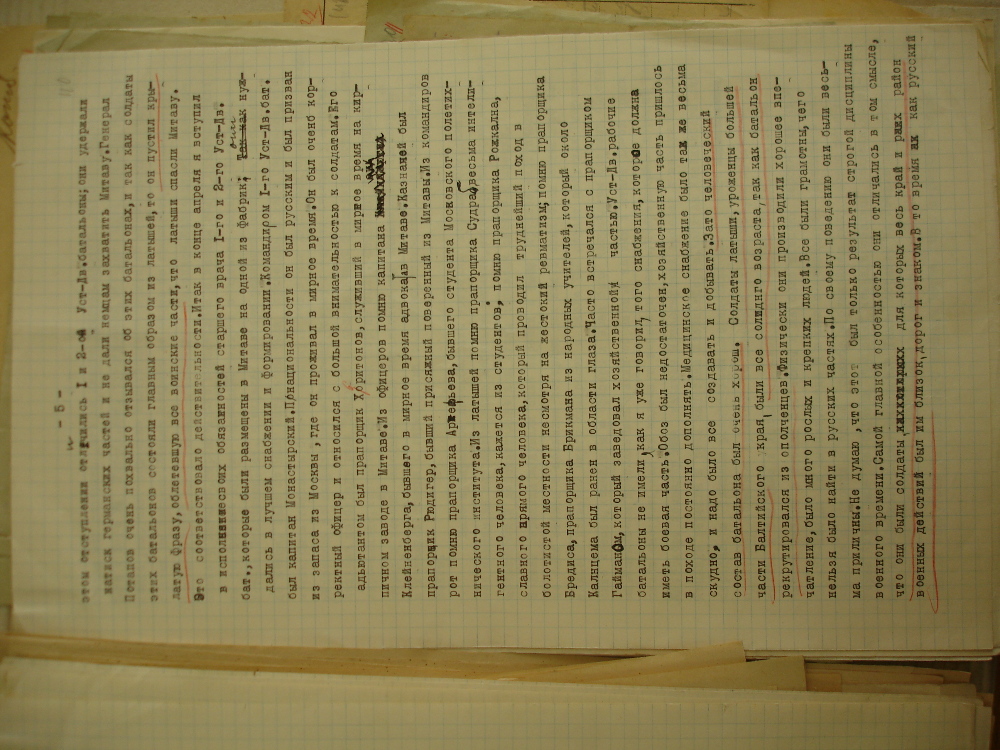 - 5 -
этом отступлении отличились I и 2-ой Уст-Дв.батальоны;они удержали
натиск германских частей и не дали немцам захватить Митаву.Генерал
Потапов очень похвально отзывался об этих батальонах,и так как солдаты
этих батальонов состояли главным образом из латышей,то он пустил кры-
латую фразу,облетевшую все воинские части,что латыши спасли Митаву.
Это соответствовало действительности.Итак в конце апреля я вступил
в исполнение своих обязанностей старшего врача I-го и 2-го Уст-Дв.
бат.,которые были размещены в Митаве на одной из фабрик, они нуж-
дались в лучшем снабжении и формировании.Командиром I-го Уст-Дв.бат.
был капитан Монастырский.По национальности он был русским и был призван
из запаса из Москвы,где он проживал в мирное время.Он был оченб кор-
ректный офицер и относился с большой внимательностью к солдатам.Его
адьютантом был прапорщик Харитонов,служивший в мирное время на кир-
пичном заводе в Митаве.Из офицеров помню капитана
Клейненберга,бывшего в мирное время адвокав Митаве.Казначей был
прапорщик Рюдигер,бывший присяжный поверенный из Митавы.Из командиров
рот помню прапорщика Артемьева,бывшего студента Московского политех-
нического института.Из латышей помню прапорщика Судраб,весьма интели-
гентного человека,кажется из студентов, помню прапорщика Рожкална,
славного прямого человека,который проводил труднейший поход в
болотистой местности несмотря на жестокий ревматизм;помню прапорщика
Бредиса,прапорщика Брикмана из народных учителей,который около
Калнцема был ранен в области глаза.Часто встречался с прапорщиком
Гайнаном,который заведовал хозяйственной частью.Уст-Дв.рабочие
баталионы не имели,как я уже говорил,того снабжения,которое должна
иметь боевая часть.Обоз был недостаточен,хозяйственную часть пришлось
в походе постоянно дополнять.Медицинское снабжение было так же весьма
скудно, и надо было все создавать и добывать.Зато человеческий
состав батальона был очень хорош. Солдаты латыши,уроженцы большей
части Балтийского края,были все солидного возраста,так как батальон
рекрутировался из ополченцев.Физически они производили хорошее впе-
чатление,было много рослых и крепких людей.Все были грамотны,чего
нельзя было найти в русских частях.По своему поведению они были весь-
ма приличны.Не думаю,что этот был только результат строгой дисциплины
военного времени.Самой главной особенностью они отличались в том смысле,
что они были солдаты для которых весь край и район
военных действий был им близок,дорог и знаком.В то время как русский